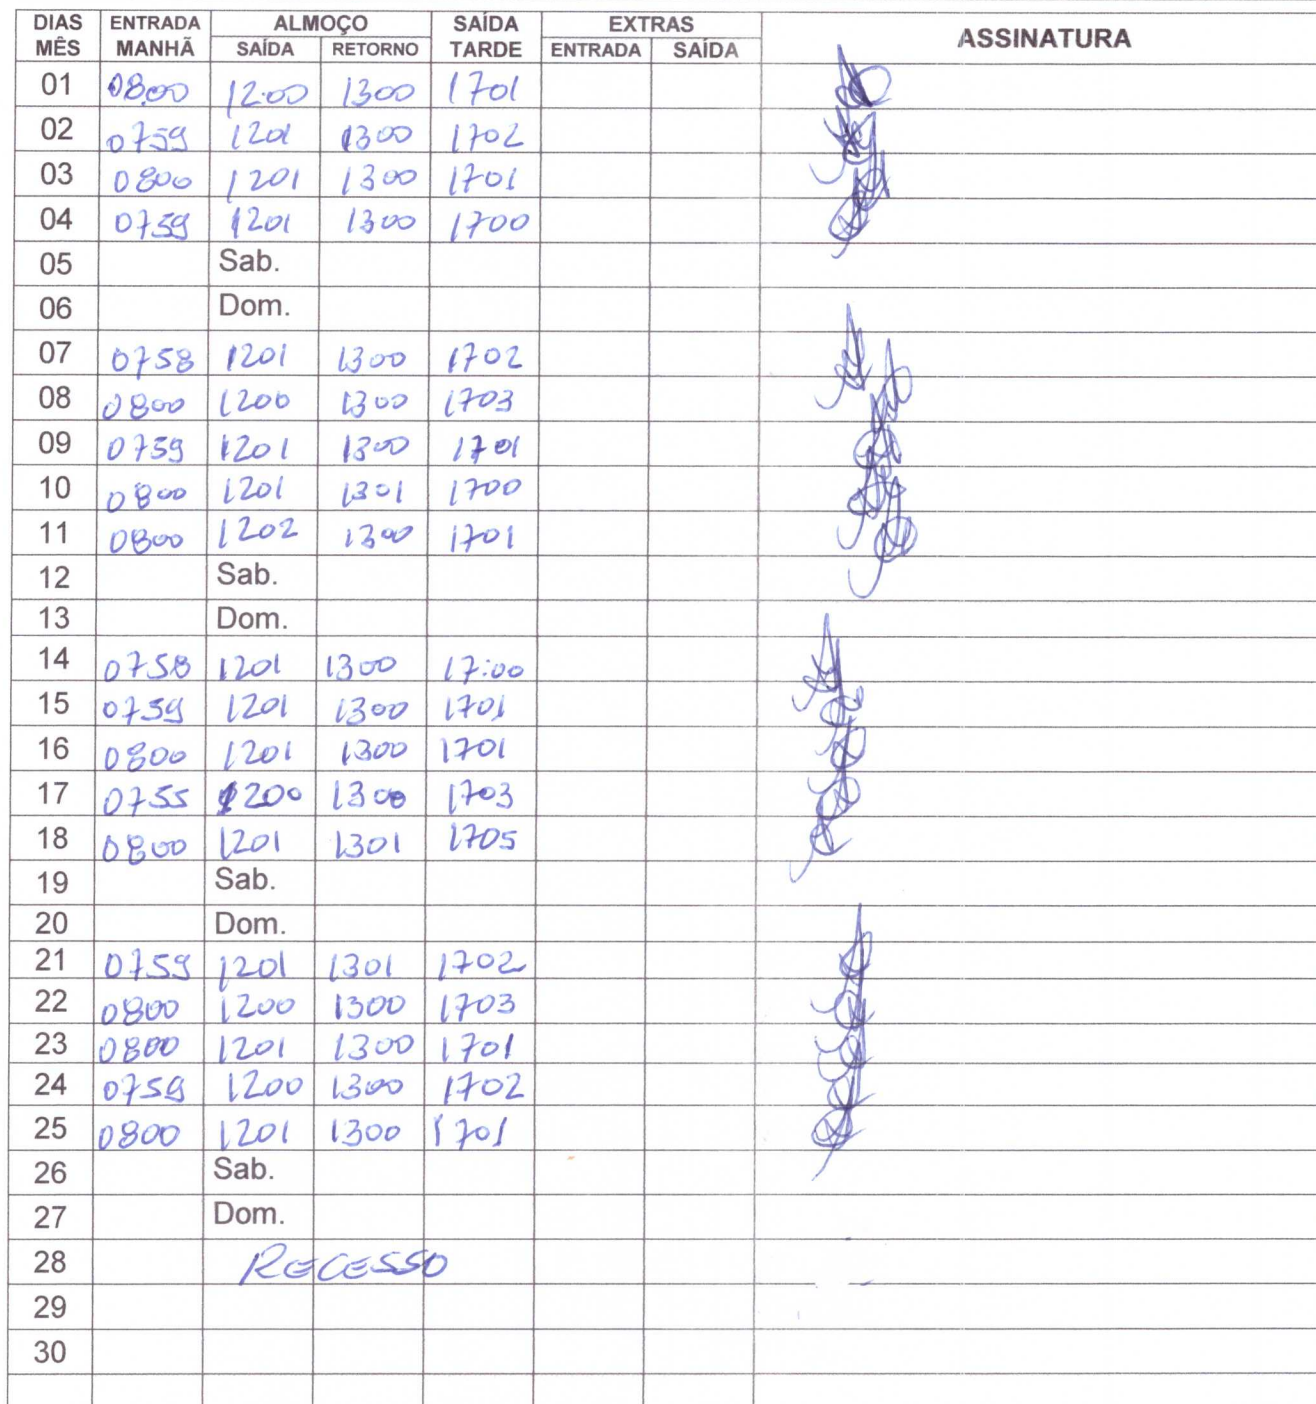 DIAS MÊS ENTRADA MANHÃ ALMOÇO SAÍDA RETORNO SAÍDA TARDE EXTRAS ENTRADA SAÍDA ASSINATURA
01 08:00 12:00 1300 1701
02 0759 1201 1300 1702
03 0800 1201 1300 1701
04 0759 1201 1300 1700
05 Sab.
06 Dom.
07 0758 1201 1300 1702
08 0800 1200 1300 1703
09 0759 1201 1300 1701
10 0800 1201 1301 1700
11 0800 1202 1300 1701
12 Sab.
13 Dom.
14 0758 1201 1300 17:00
15 0759 1201 1300 1701
16 0800 1201 1300 1701
17 0755 1200 1300 1703
18 0800 1201 1301 1705
19 Sab.
20 Dom.
21 0759 1201 1301 1702
22 0800 1200 1300 1703
23 0800 1201 1300 1701
24 0759 1200 1300 1702
25 0800 1201 1300 1701
26 Sab.
27 Dom.
28 RECESSO
29
30